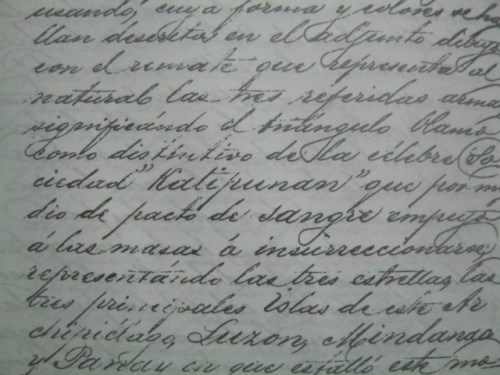 usando, cuya forma y colores se ha
llan descritos en el adjunto dibujo
con el remate que representa al
natural las tres referidas armas
significando el triángulo blanco
como distintivo de la célebre So
ciedad "Katipunan" que por me
dio de pacto de sangre empujo
á las masas á insurreccionarse,
representando las tres estrellas las
tres principales Islas de este Ar
chipiélago, Luzon, Mindanao
y Panay en que estalló este mo